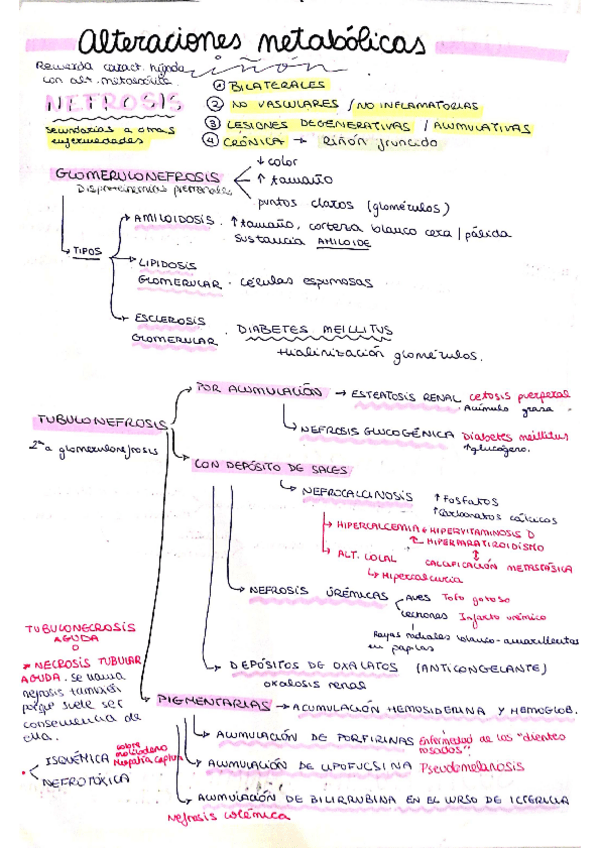 Alteraciones metabólicas
Recuerda caract. hígado riñon
con alt. metabólica
① BILATERALES
NEFROSIS
② NO VASCULARES / NO INFLAMATORIAS
secundarias a otras
enfermedades
③ LESIONES DEGENERATIVAS / ACUMULATIVAS
④ CRÓNICA → Riñón fruncido
GLOMERULONEFROSIS
↓ color
↑ tamaño
puntos claros (glomérulos)
TIPOS
AMILOIDOSIS. ↑ tamaño, corteza blanco cera / pálida
Sustancia AMILOIDE
LIPIDOSIS
GLOMERULAR. células espumosas
ESCLEROSIS
GLOMERULAR. DIABETES MEILLITUS
Hialinización glomérulos.
POR ACUMULACIÓN → ESTEATOSIS RENAL cetosis puerperal
. Acúmulo grasa.
TUBULONEFROSIS
NEFROSIS GLUCOGÉNICA Diabetes meillitus
↑ glucógeno.
2ª a glomerulonefrosis
CON DEPÓSITO DE SALES
NEFROCALCINOSIS ↑ FOSFATOS
↑ Carbonatos cálcicos
HIPERCALCEMIA + HIPERVITAMINOSIS D
HIPERPARATIROIDISMO
ALT. LOCAL CALCIFICACIÓN METASTÁSICA
↳ Hipercalciuria
NEFROSIS ÚRÉMICAS
AVES Tofo gotoso
Lechones Infarto urémico
Rayas radiales blanco-amarillentas
en papilas
TUBULONECROSIS
AGUDA
O
NECROSIS TUBULAR
AGUDA. Se llama
nefrosis también
porque suele ser
consecuencia de
ella.
ISQUÉMICA
NEFROTÓXICA
DEPÓSITOS DE OXALATOS (ANTICONGELANTE)
oxalosis renal
PIGMENTARIAS → ACUMULACIÓN HEMOSIDERINA Y HEMOGLOB.
ACUMULACIÓN DE PORFIRINAS Enfermedad de los "dientes
rosados".
ACUMULACIÓN DE LIPOFUCSINA Pseudomelanosis
ACUMULACIÓN DE BILIRRUBINA EN EL CURSO DE ICTERICIA
Nefrosis colémica